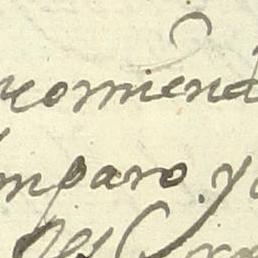 recomiend
mparo. y